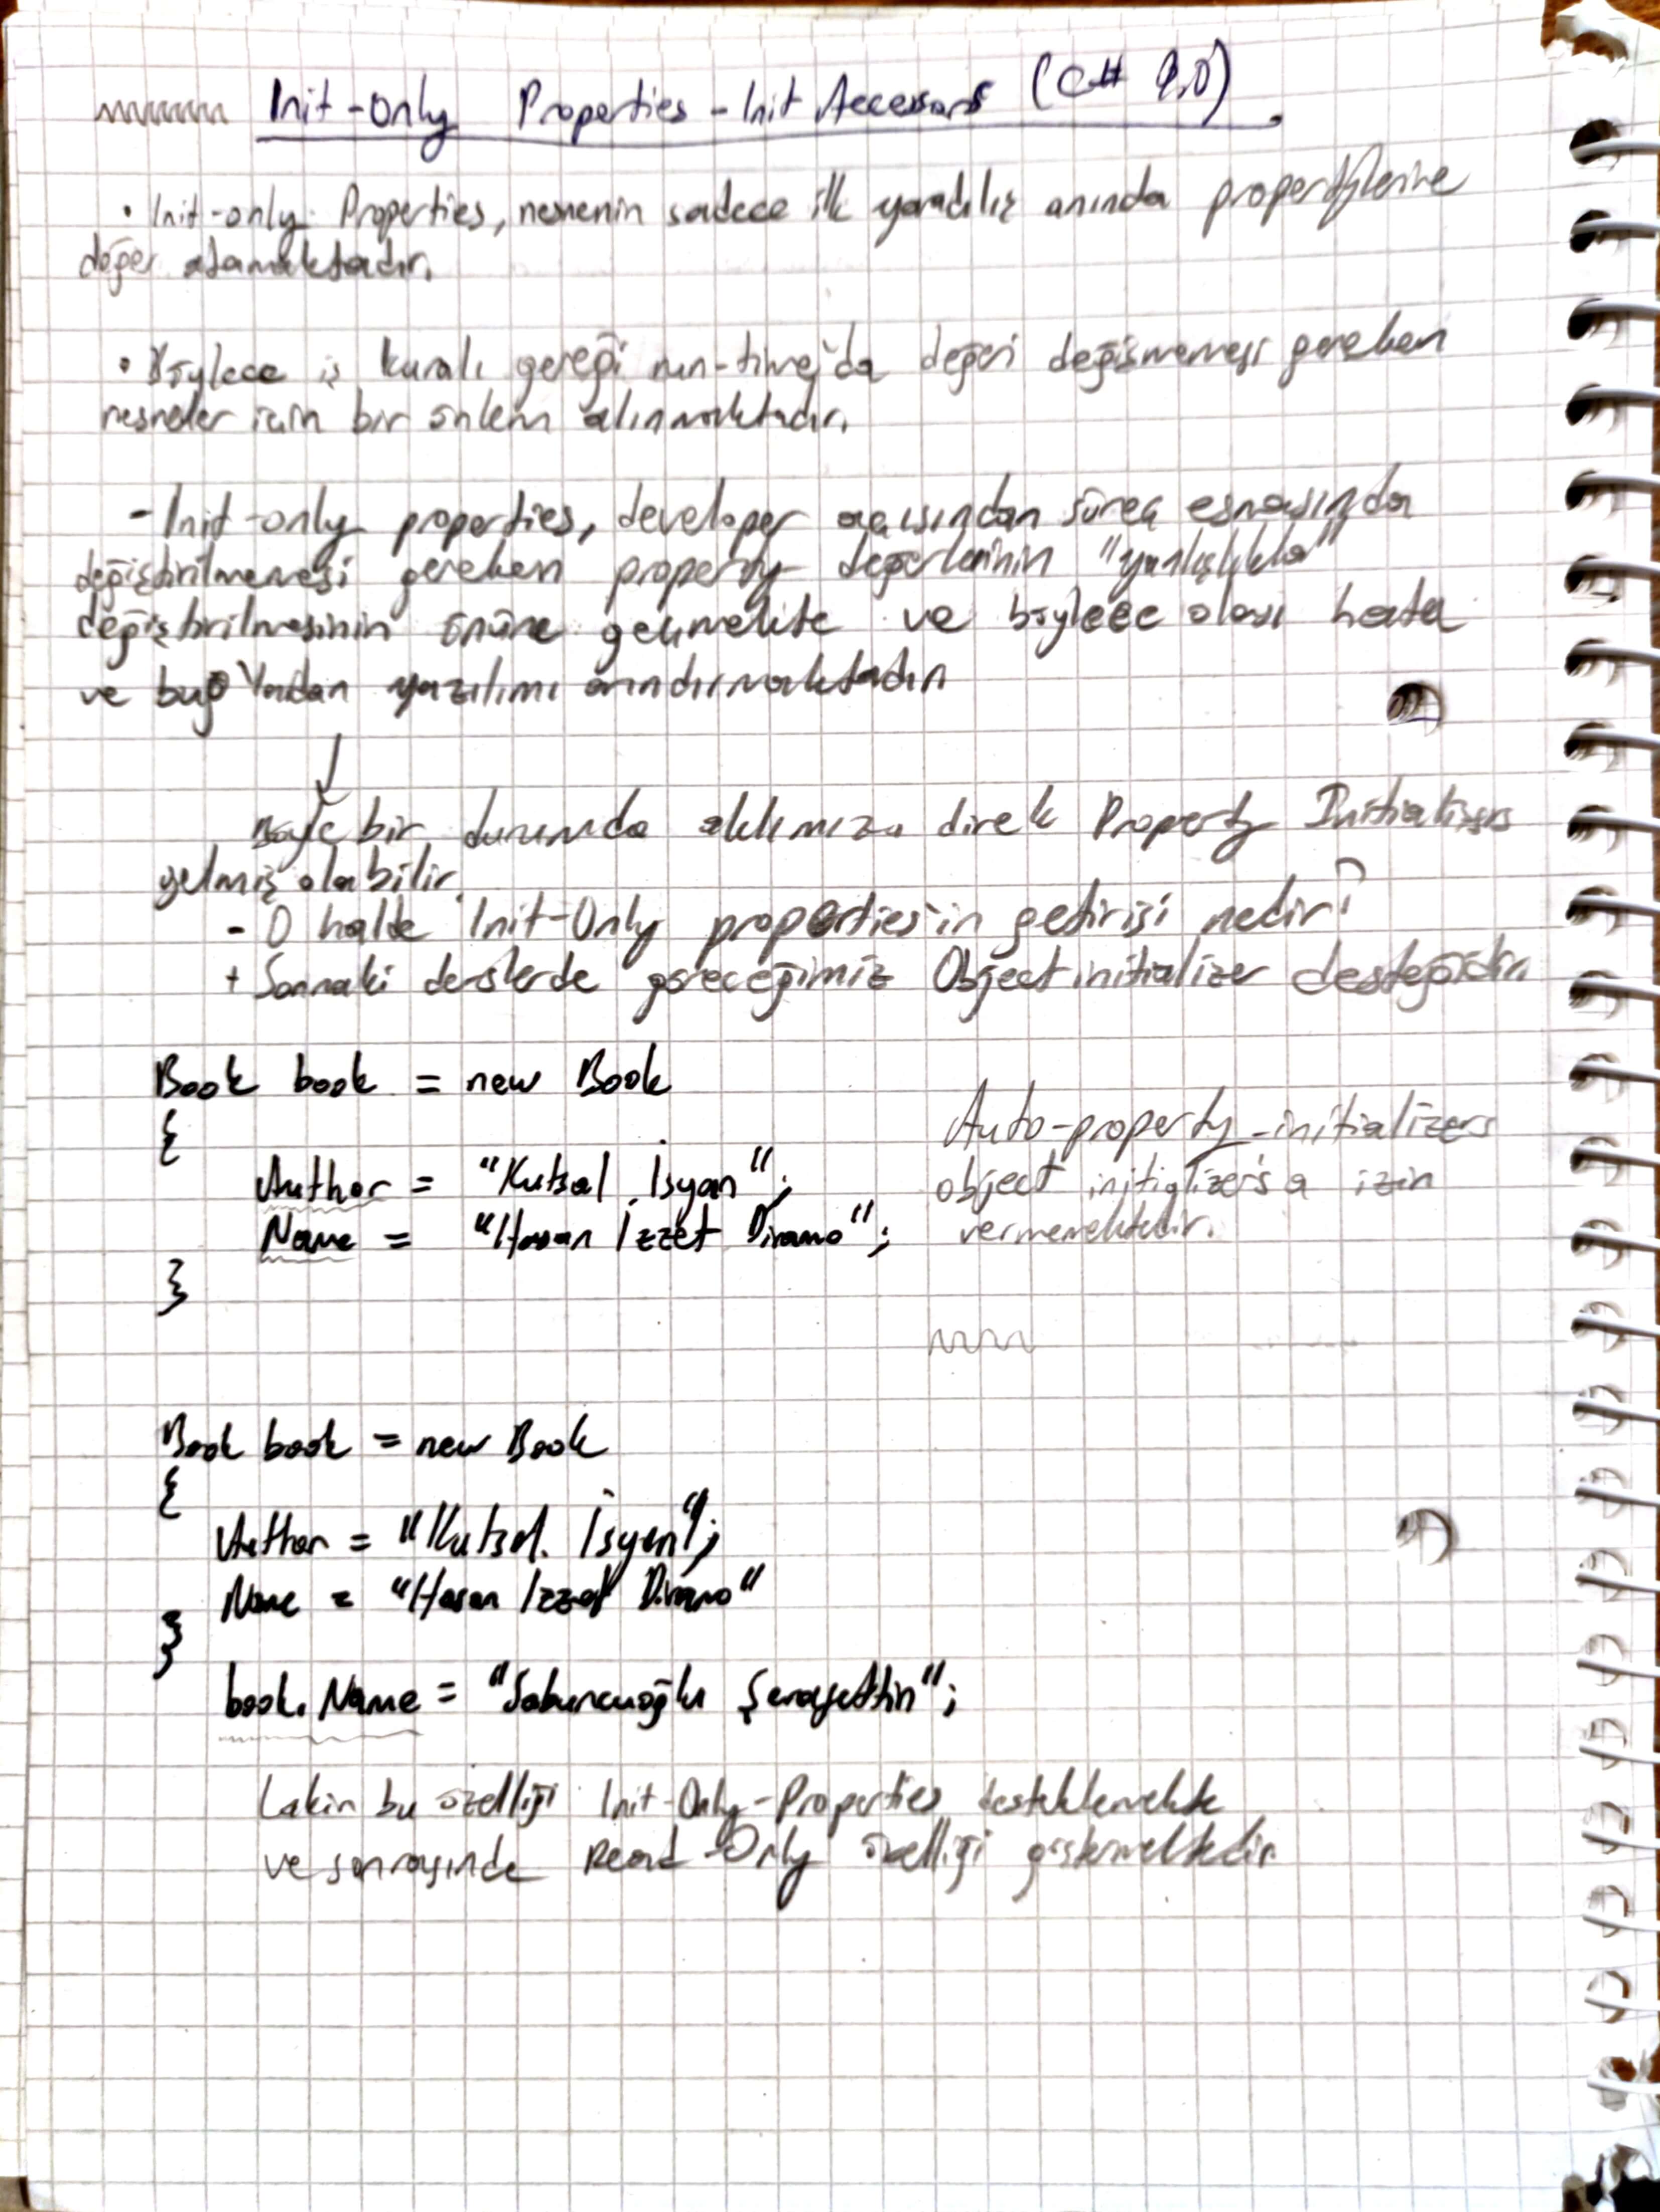 Init-only Properties - Init Accessors (C# 9.0)
• Init-only Properties, nesnenin sadece ilk yaradılış anında propertylerine
değer atamaktadır.
• Böylece iş kuralı gereği run-time'da değeri değişmemesi gereken
nesneler için bir önlem alınmaktadır.
- Init-only properties, developer açısından süreç esnasında
değiştirilmemesi gereken property değerlerinin "yanlışlıkla"
değiştirilmesinin önüne geçmekte ve böylece olası hata
ve bug'lardan yazılımı arındırmaktadır
↓
Böyle bir durumda aklımıza direk Property Initializers
gelmiş olabilir.
- O halde Init-Only properties'in getirisi nedir?
+ Sonraki derslerde göreceğimiz Object initializer desteğidir.
Book book = new Book
{
Author = "Kutsal İsyan";
Name = "Hasan İzzet Dinamo";
}
Auto-property-initializers
object initializers'a izin
vermemektedir.
Book book = new Book
{
Author = "Kutsal İsyan";
Name = "Hasan Izzet Dinamo"
}
book.Name = "Sabuncuoğlu Şerafettin";
Lakin bu özelliği Init-Only-Properties desteklemekte
ve sonrasında Read-Only özelliği göstermektedir.